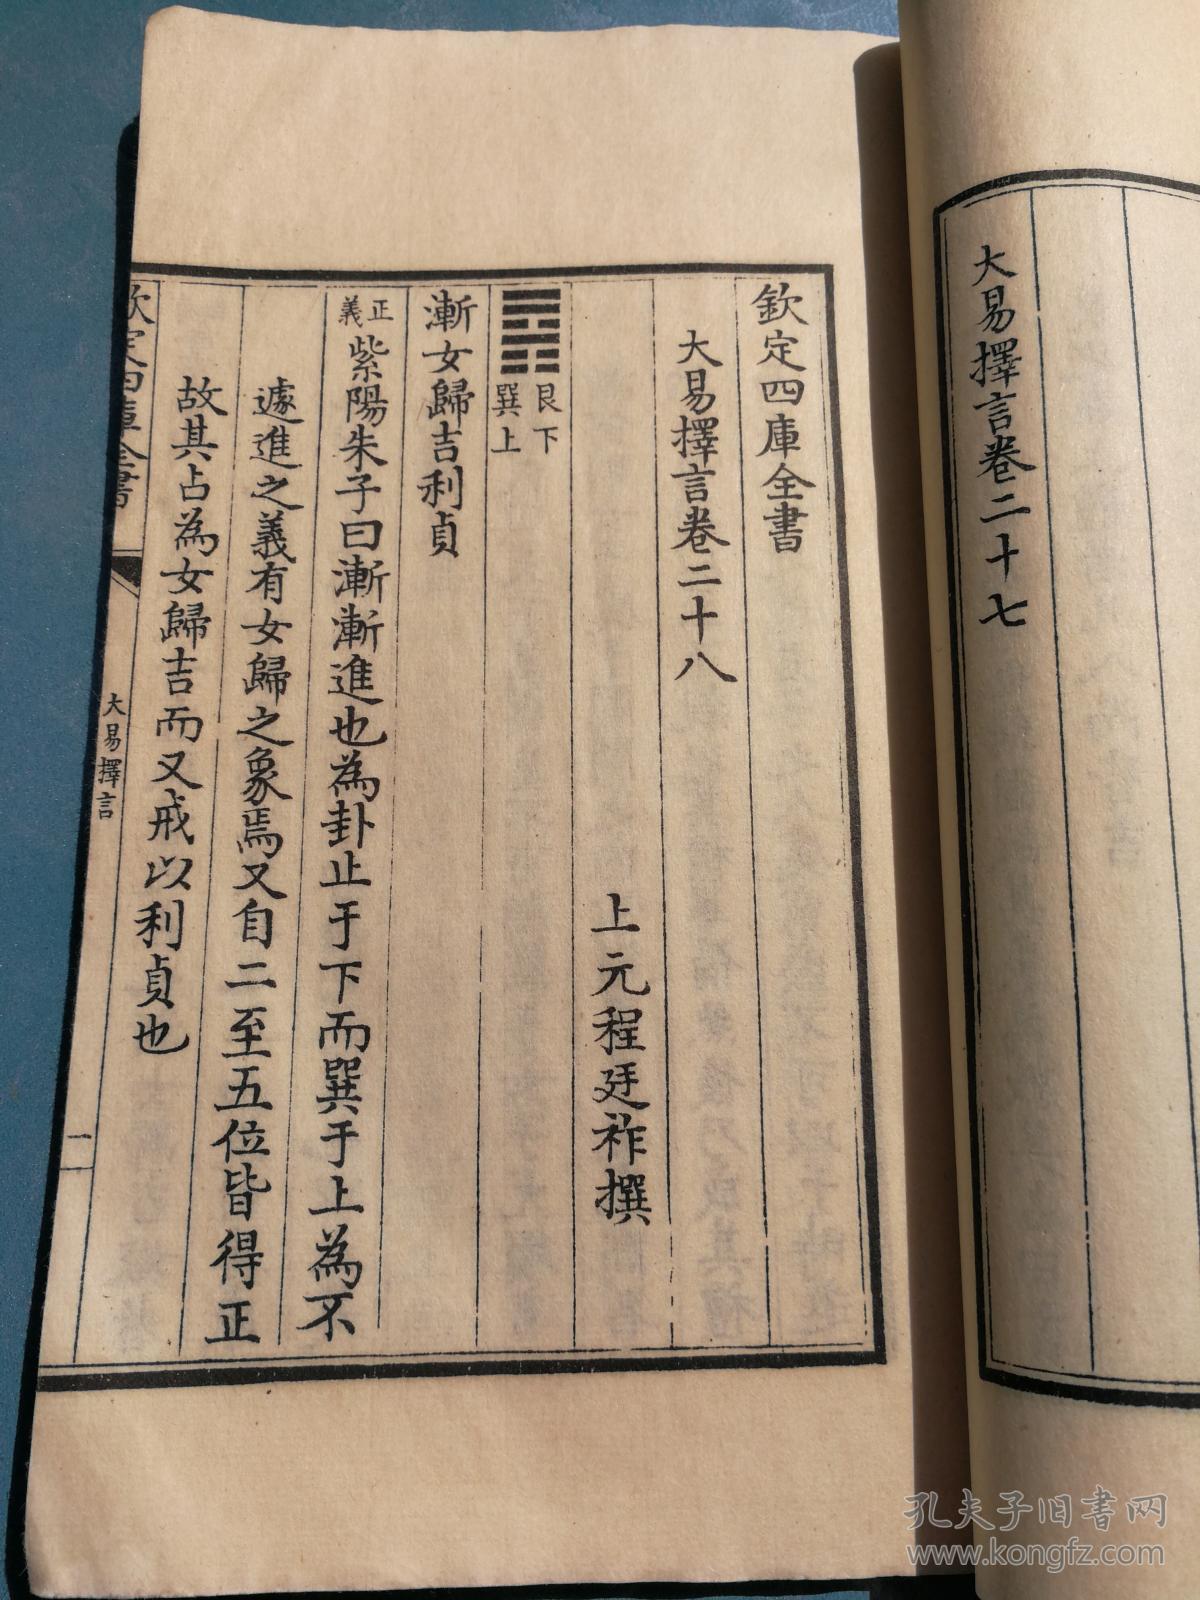 大易擇言卷二十七
欽定四庫全書
大易擇言卷二十八
上元程廷祚撰
䷴艮下巽上
漸女歸吉利貞
正義紫陽朱子曰漸漸進也為卦止于下而巽于上為不
遽進之義有女歸之象焉又自二至五位皆得正
故其占為女歸吉而又戒以利貞也
欽定四庫全書
大易擇言
一
孔夫子旧书网
www.kongfz.com